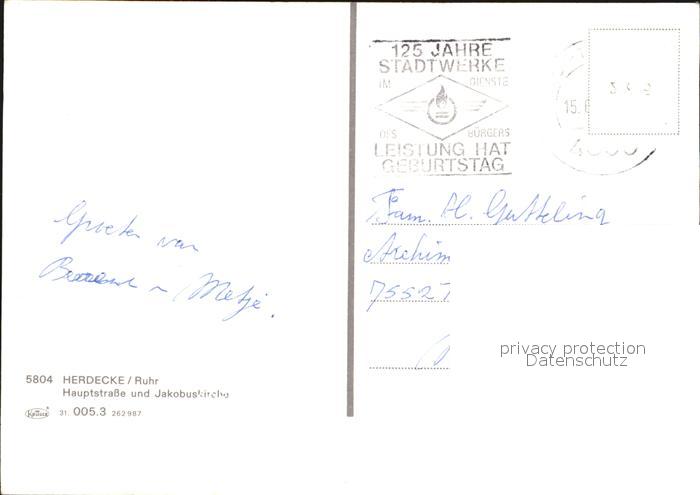 125 JAHRE
STADTWERKE
IM DIENSTE
DES BÜRGERS
LEISTUNG HAT
GEBURTSTAG
15.6
Fam. H. Gutteling
Archim
7552
privacy protection
Datenschutz
Groeten van
n Metje.
5804 HERDECKE / Ruhr
Hauptstraße und Jakobuskirche
Krüger
31. 005.3 262987